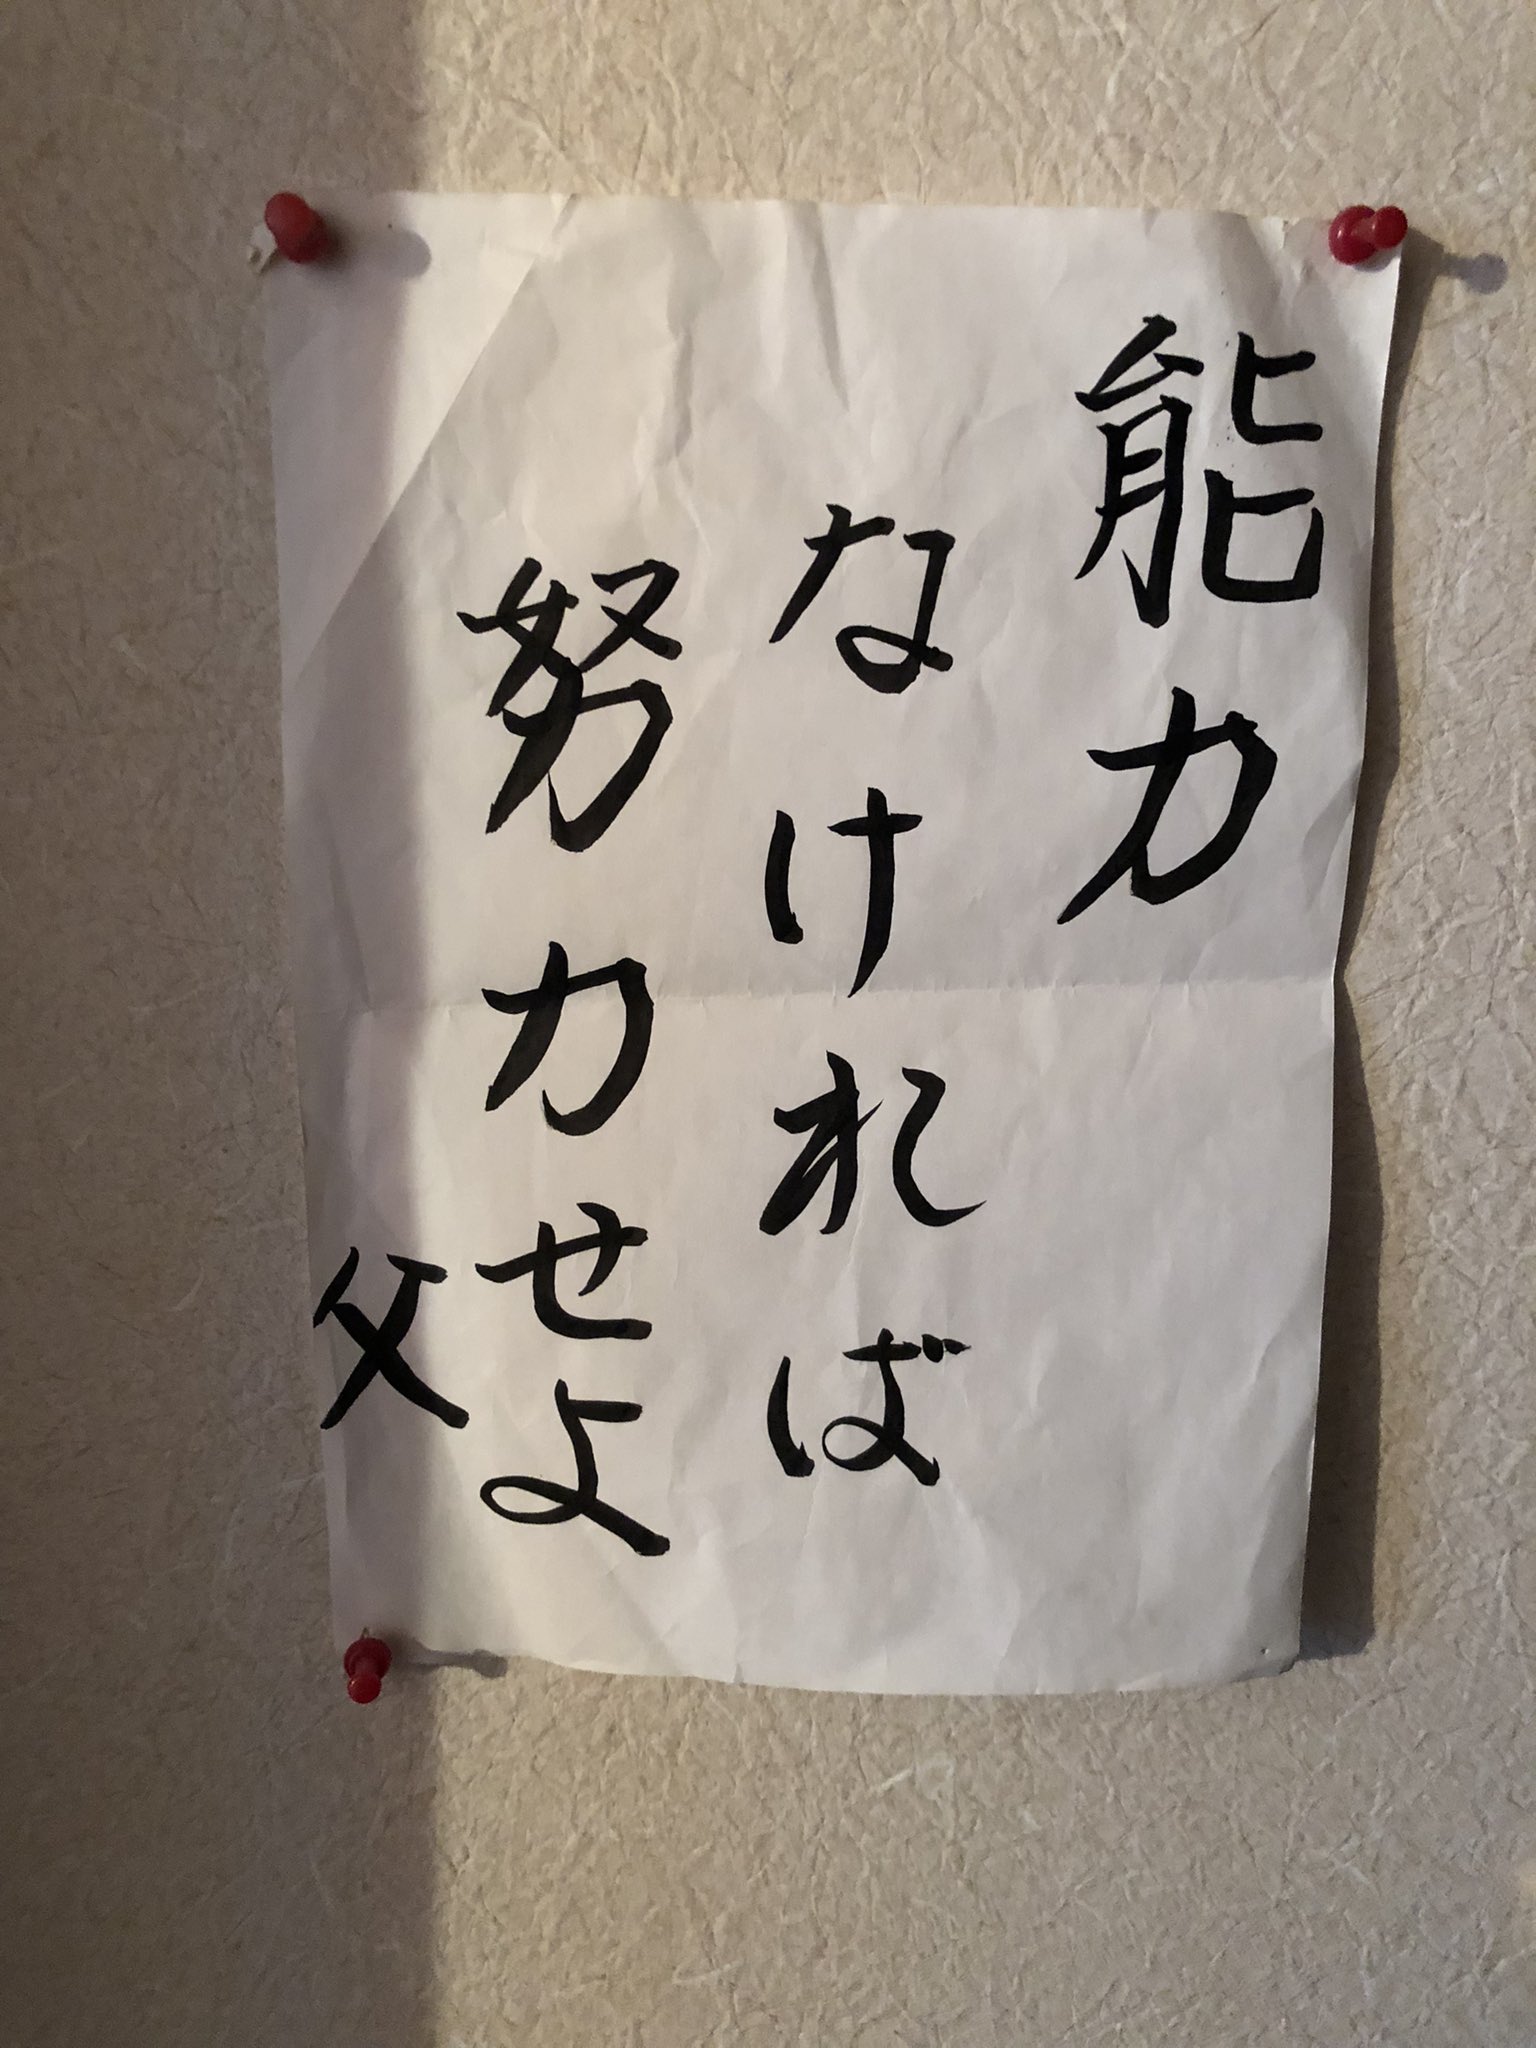 能力
なければ
努力せよ
父